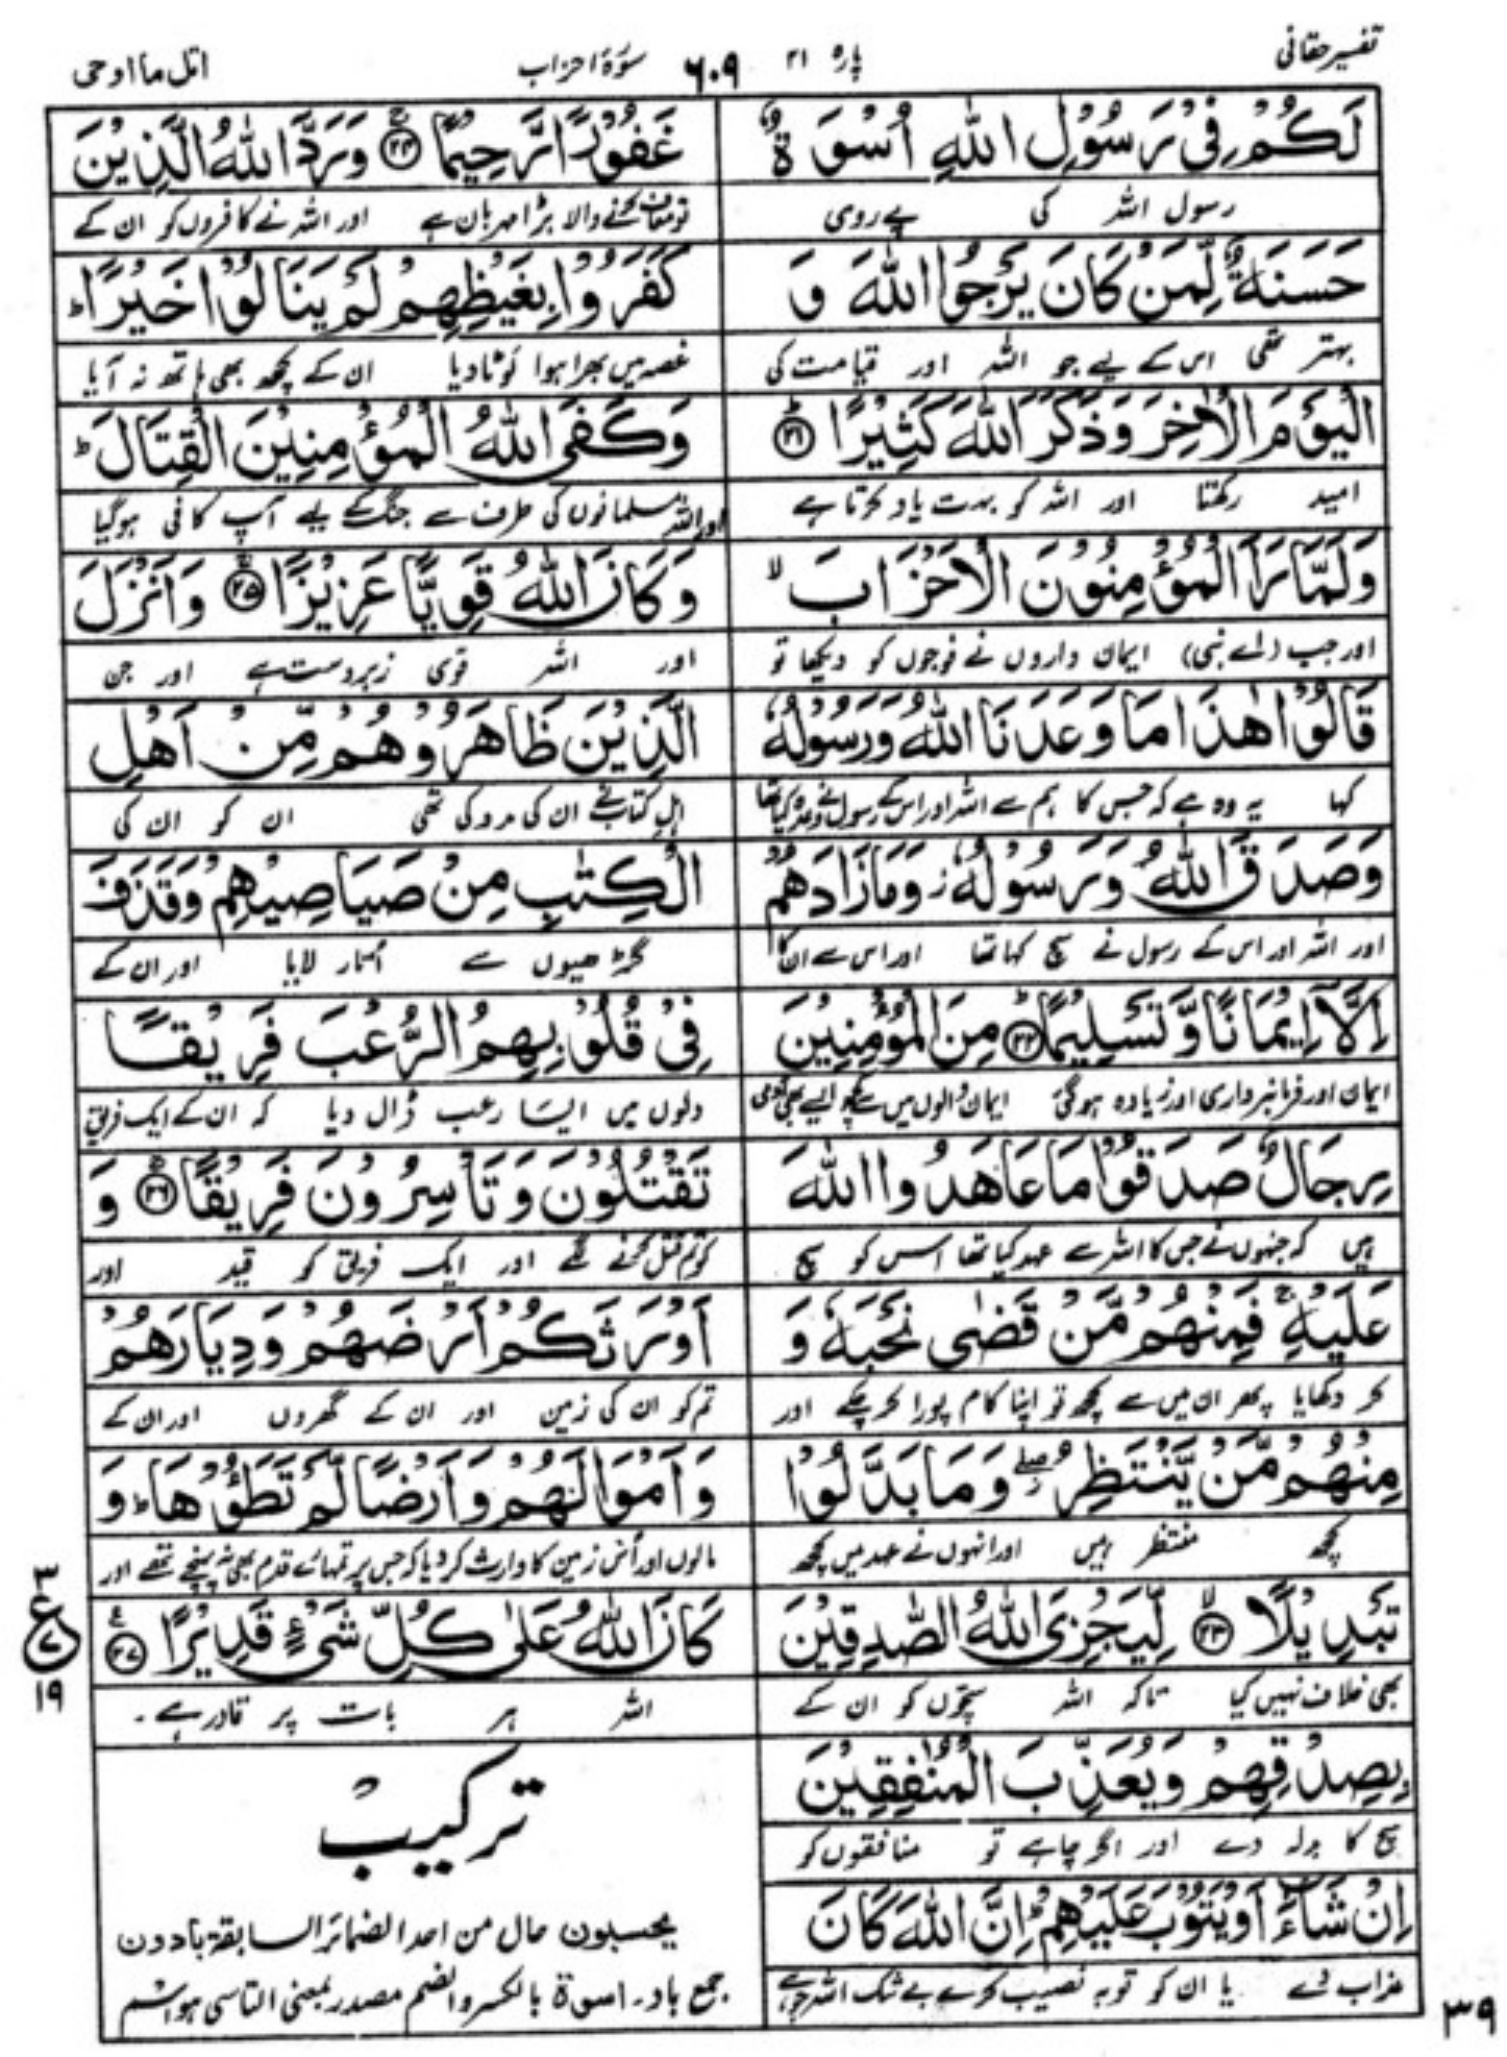 تفسیر حقانی
پارہ ۲۱
۶۰۹
سورۃ احزاب
اتل ما اوحی
لَكُمْ فِیْ رَسُوْلِ اللّٰهِ اُسْوَةٌ
رسول اللہ کی پے روی
حَسَنَةٌ لِّمَنْ كَانَ یَرْجُوا اللّٰهَ وَ
بہتر تھی اس کے لیے جو اللہ اور قیامت کی
الْیَوْمَ الْاٰخِرَ وَذَكَرَ اللّٰهَ كَثِیْرًا ؕ۲۱
امید رکھتا اور اللہ کو بہت یاد کرتا ہے
وَلَمَّا رَاَ الْمُؤْمِنُوْنَ الْاَحْزَابَ ۙ
اور جب (اے نبی) ایمان داروں نے فوجوں کو دیکھا تو
قَالُوْا هٰذَا مَا وَعَدَنَا اللّٰهُ وَرَسُوْلُهٗ
کہا یہ وہ ہے کہ جس کا ہم سے اللہ اور اس کے رسول نے وعدہ کیا تھا
وَصَدَقَ اللّٰهُ وَرَسُوْلُهٗ ز وَمَا زَادَهُمْ
اور اللہ اور اس کے رسول نے سچ کہا تھا اور اس سے ان کا
اِلَّاۤ اِیْمَانًا وَّتَسْلِیْمًا ؕ۲۲ مِنَ الْمُؤْمِنِیْنَ
ایمان اور فرمانبرداری اور زیادہ ہوگئی ایمان والوں میں سے کچھ ایسے بھی آدمی
رِجَالٌ صَدَقُوْا مَا عَاهَدُوا اللّٰهَ
ہیں کہ جنہوں نے جس کا اللہ سے عہد کیا تھا اس کو سچ
عَلَیْهِ ۚ فَمِنْهُمْ مَّنْ قَضٰى نَحْبَهٗ وَ
کر دکھایا پھر ان میں سے کچھ تو اپنا کام پورا کر چکے اور
مِنْهُمْ مَّنْ یَّنْتَظِرُ ۖ وَمَا بَدَّلُوْا
کچھ منتظر ہیں اور انہوں نے عہد میں کچھ
تَبْدِیْلًا ۙ۲۳ لِّیَجْزِیَ اللّٰهُ الصّٰدِقِیْنَ
بھی خلاف نہیں کیا تاکہ اللہ سچوں کو ان کے
بِصِدْقِهِمْ وَیُعَذِّبَ الْمُنٰفِقِیْنَ
سچ کا بدلہ دے اور اگر چاہے تو منافقوں کو
اِنْ شَآءَ اَوْ یَتُوْبَ عَلَیْهِمْ ؕ اِنَّ اللّٰهَ كَانَ
عذاب دے یا ان کو توبہ نصیب کرے بے شک اللہ
غَفُوْرًا رَّحِیْمًا ۚ۲۴ وَرَدَّ اللّٰهُ الَّذِیْنَ
تو معاف کرنے والا بڑا مہربان ہے اور اللہ نے کافروں کو ان کے
كَفَرُوْا بِغَیْظِهِمْ لَمْ یَنَالُوْا خَیْرًا ؕ
غصہ میں بھرا ہوا لوٹا دیا ان کے کچھ بھی ہاتھ نہ آیا
وَكَفَى اللّٰهُ الْمُؤْمِنِیْنَ الْقِتَالَ ؕ
اور اللہ مسلمانوں کی طرف سے جنگ کے لیے آپ کافی ہوگیا
وَكَانَ اللّٰهُ قَوِیًّا عَزِیْزًا ۚ۲۵ وَاَنْزَلَ
اور اللہ قوی زبردست ہے اور جن
الَّذِیْنَ ظَاهَرُوْهُمْ مِّنْ اَهْلِ
اہل کتاب نے ان کی مدد کی تھی ان کو ان کی
الْكِتٰبِ مِنْ صَیَاصِیْهِمْ وَقَذَفَ
گڑھیوں سے اُتار لایا اور ان کے
فِیْ قُلُوْبِهِمُ الرُّعْبَ فَرِیْقًا
دلوں میں ایسا رعب ڈال دیا کہ ان کے ایک فریق
تَقْتُلُوْنَ وَتَاْسِرُوْنَ فَرِیْقًا ۚ۲۶ وَ
کو تم قتل کرنے لگے اور ایک فریق کو قید اور
اَوْرَثَكُمْ اَرْضَهُمْ وَدِیَارَهُمْ
تم کو ان کی زمین اور ان کے گھروں اور ان کے
وَاَمْوَالَهُمْ وَاَرْضًا لَّمْ تَطَـُٔوْهَا ؕ وَ
مالوں اور اُس زمین کا وارث کر دیا کہ جس پر تمہارے قدم بھی نہ پہنچے تھے اور
كَانَ اللّٰهُ عَلٰى كُلِّ شَیْءٍ قَدِیْرًا ۠۲۷
اللہ ہر بات پر قادر ہے۔
۳
ع
۷
۱۹
ترکیب
یحسبون حال من احد الضمائر السابقۃ بادون
جمع باد۔ اسوۃ بالکسر والضم مصدر بمعنی التاسی ہو اسم
۳۹